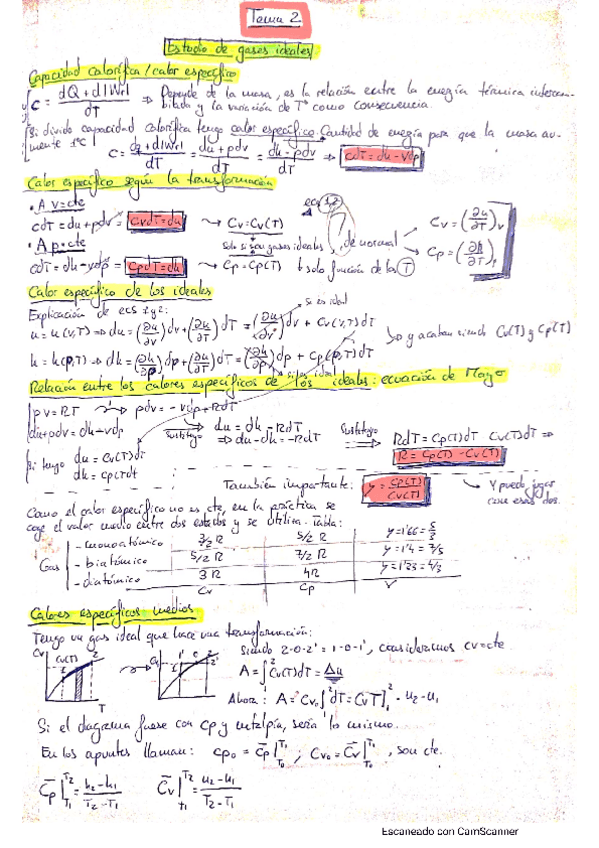 Tema 2
Estudio de gases ideales
Capacidad calorífica / calor específico
C = dQ + d|Wr| / dT ⇒ Depende de la masa, es la relación entre la energía térmica intercam-
biada y la variación de Tª como consecuencia.
Si divido capacidad calorífica tengo calor específico. Cantidad de energía para que la masa au-
mente 1ºC
C = dq + d|Wr| / dT = du + pdv / dT = dh - vdp / dT ⇒ cdT = dh - vdp
Calor específico según la transformación
• A v = cte
cdT = du + pdv = CvdT = du → Cv = Cv(T)
ecs 1,2
Solo si son gases ideales, de normal
Cv = (∂u/∂T)v
Cp = (∂h/∂T)p
• A p = cte
cdT = dh - vdp = CpdT = dh → Cp = Cp(T) solo función de los (T)
Calor específico de los ideales
Explicación de ecs 1 y 2:
si es ideal
u = u(v,T) ⇒ du = (∂u/∂v)dv + (∂u/∂T)dT = (∂u/∂v)dv + Cv(v,T)dT
yo y acaban siendo Cv(T) y Cp(T)
h = h(p,T) ⇒ dh = (∂h/∂p)dp + (∂h/∂T)dT = (∂h/∂p)dp + Cp(p,T)dT
si es ideal
Relación entre los calores específicos de los ideales: ecuación de Mayer
pv = RT → pdv = -vdp + RdT
du + pdv = dh - vdp
Sustituyo
du = dh - RdT
⇒ du - dh = -RdT
Sustituyo
RdT = Cp(T)dT - Cv(T)dT ⇒
R = Cp(T) - Cv(T)
Si tengo
du = Cv(T)dT
dh = Cp(T)dT
También importante: γ = Cp(T) / Cv(T) → Y puedo jugar
con esas dos.
Como el calor específico no es cte, en la práctica se
coge el valor medio entre dos estados y se utiliza. Tabla:
Gas
- monoatómico 3/2 R 5/2 R γ = 1'66 = 5/3
- biatómico 5/2 R 7/2 R γ = 1'4 = 7/5
- diatómico 3R 4R γ = 1'33 = 4/3
Cv Cp γ
Calores específicos medios
Tengo un gas ideal que hace una transformación:
Siendo 2-0-2' = 1-0-1', consideramos cv = cte
Cv Cv(T) T
A = ∫₁² Cv(T)dT = Δu
Ahora: A = Cv₀ ∫₁² dT = CvT]₁² = u₂ - u₁
Si el diagrama fuese con cp y entalpía, sería lo mismo.
En los apuntes llaman: cp₀ = C̄p|T₁ T₀ ; Cv₀ = C̄v|T₁ T₀, son cte.
C̄p|T₂ T₁ = h₂ - h₁ / T₂ - T₁ C̄v|T₂ T₁ = u₂ - u₁ / T₂ - T₁
Escaneado con CamScanner